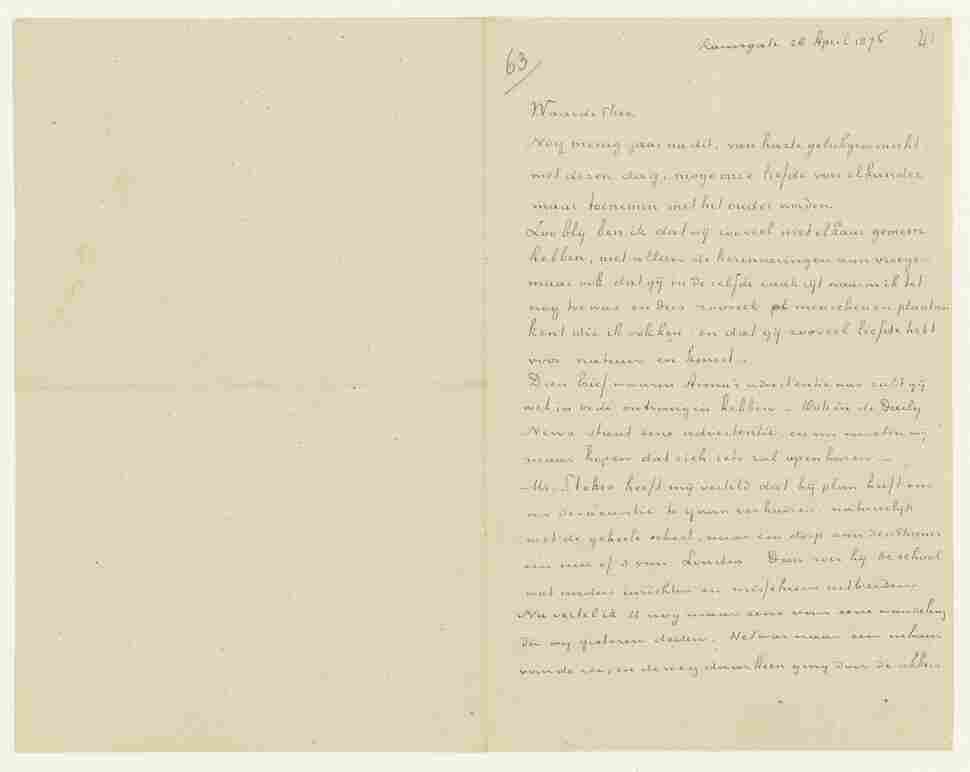 Ramsgate 28 April 1876
41
63
Waarde Theo
Nog menig jaar na dit, van harte geluk gewenscht
met dezen dag, moge onze liefde voor elkander
maar toenemen met het ouder worden.
Zoo bly ben ik dat wij zooveel met elkaar gemeen
hebben, niet alleen de herinneringen van vroeger
maar ook dat gij in de zelfde zaak zijt waarin ik tot
nog toe was en dus zooveel menschen en plaatsen
kent die ik ook ken en dat gij zooveel liefde hebt
voor natuur en kunst.
Dien brief waarin Anna's advertentie was zult gij
wel in orde ontvangen hebben – Ook in de Daily
News stond eene advertentie en wy moeten nu
maar hopen dat zich iets zal openbaren –
Mr. Stokes heeft mij verteld dat hij plan heeft om
na de vacantie te gaan verhuizen – natuurlijk
met de geheele school, naar een dorp aan den Theems
een uur of 3 van Londen. Daar zou hij de school
wat anders inrichten en misschien uitbreiden.
Nu vertel ik U nog maar eens van eene wandeling
die wy gisteren deden. Het was naar een inham
van de zee, en de weg daarheen ging door de akkers